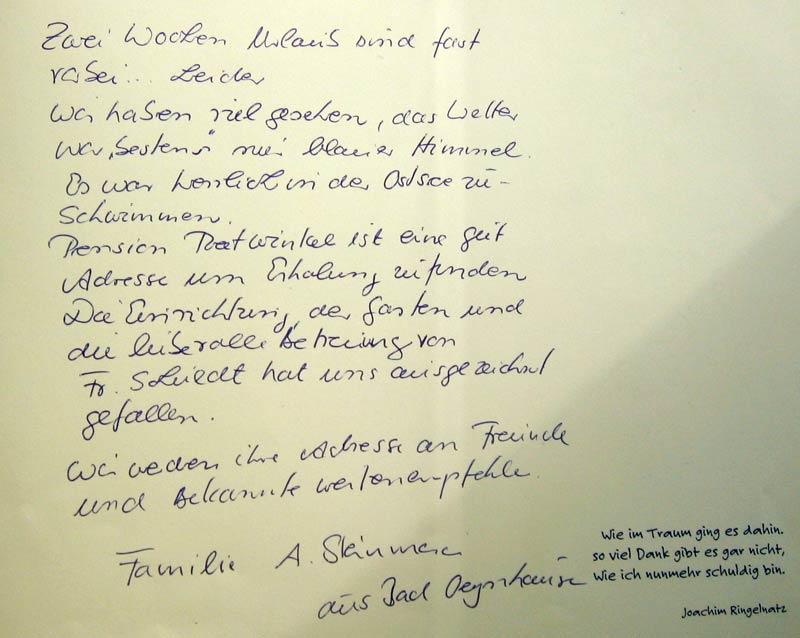 Zwei Wochen Urlaub sind fast
vorbei... Leider
Wir haben viel gesehen, das Wetter
war „bestens" nur blauer Himmel.
Es war herrlich in der Ostsee zu-
Schwimmen.
Pension ist eine gut
Adresse um Erholung zu finden
Die Einrichtung, der Garten und
die Betreuung von
Fr. hat uns ausgezeichnet
gefallen.
Wir werden ihre Adresse an Freunde
und Bekannte
Familie A.
aus Bad Oeynhausen
Wie im Traum ging es dahin.
so viel Dank gibt es gar nicht,
Wie ich nunmehr schuldig bin.
Joachim Ringelnatz